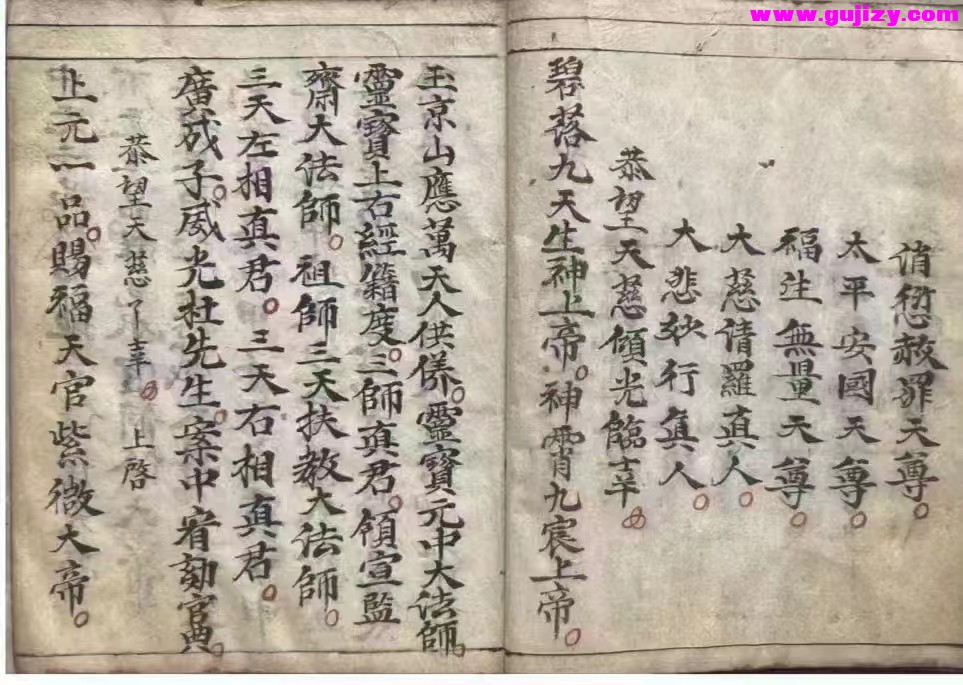 www.gujizy.com
消愆赦罪天尊。
太平安國天尊。
福生無量天尊。
大慈情羅真人。
大悲妙行真人。
恭望天慈傾光臨
碧落九天生神上帝。神霄九宸上帝。
玉京山應萬天人供養。靈寶元中大法師。
靈寶上古經籍度。三師真君。領宣監
齋大法師。祖師三天扶教大法師。
三天左相真君。三天右相真君。
廣成子。威光杜先生。案中宿劾官典。
恭望天慈了 上啓
上元一品。賜福天官紫微大帝。